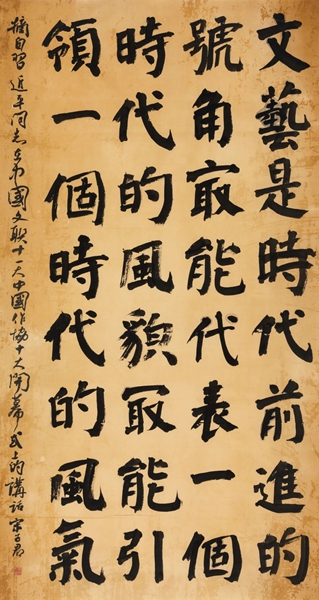 文藝是時代前進的
號角最能代表一個
時代的風貌最能引
領一個時代的風氣
摘自習近平同志在中國文联十一大中國作協十大開幕式上的講話